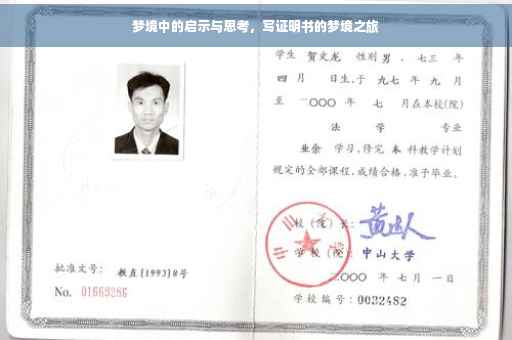 梦境中的启示与思考，写证明书的梦境之旅
学生 贺文龙 性别 男 、七三 年
四 月 日生,于 九七 年 九 月
至 二〇〇〇 年 七 月在本校(院)
法 学 专业
业余 学习,修完 本 科教学计划
规定的全部课程,成绩合格,准予毕业。
校 (院) 长:
学 校 (院): 中山大学
二〇〇〇 年 七 月 一 日
学校编号: 0032482
批准文号: 教直[1993]8号
No. 01669286